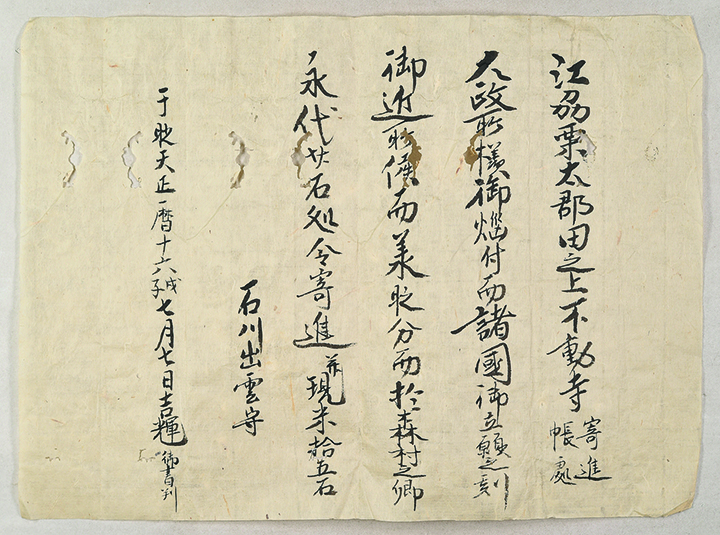 江刕栗太郡田之上不動寺寄進帳處
大政所様御煩付而諸國御立願之刻
御近所候而美
分而於森村之郷
永代廿石処令寄進并現米拾五石
石川出雲守
于時天正暦十六戊子七月七日吉輝御書判